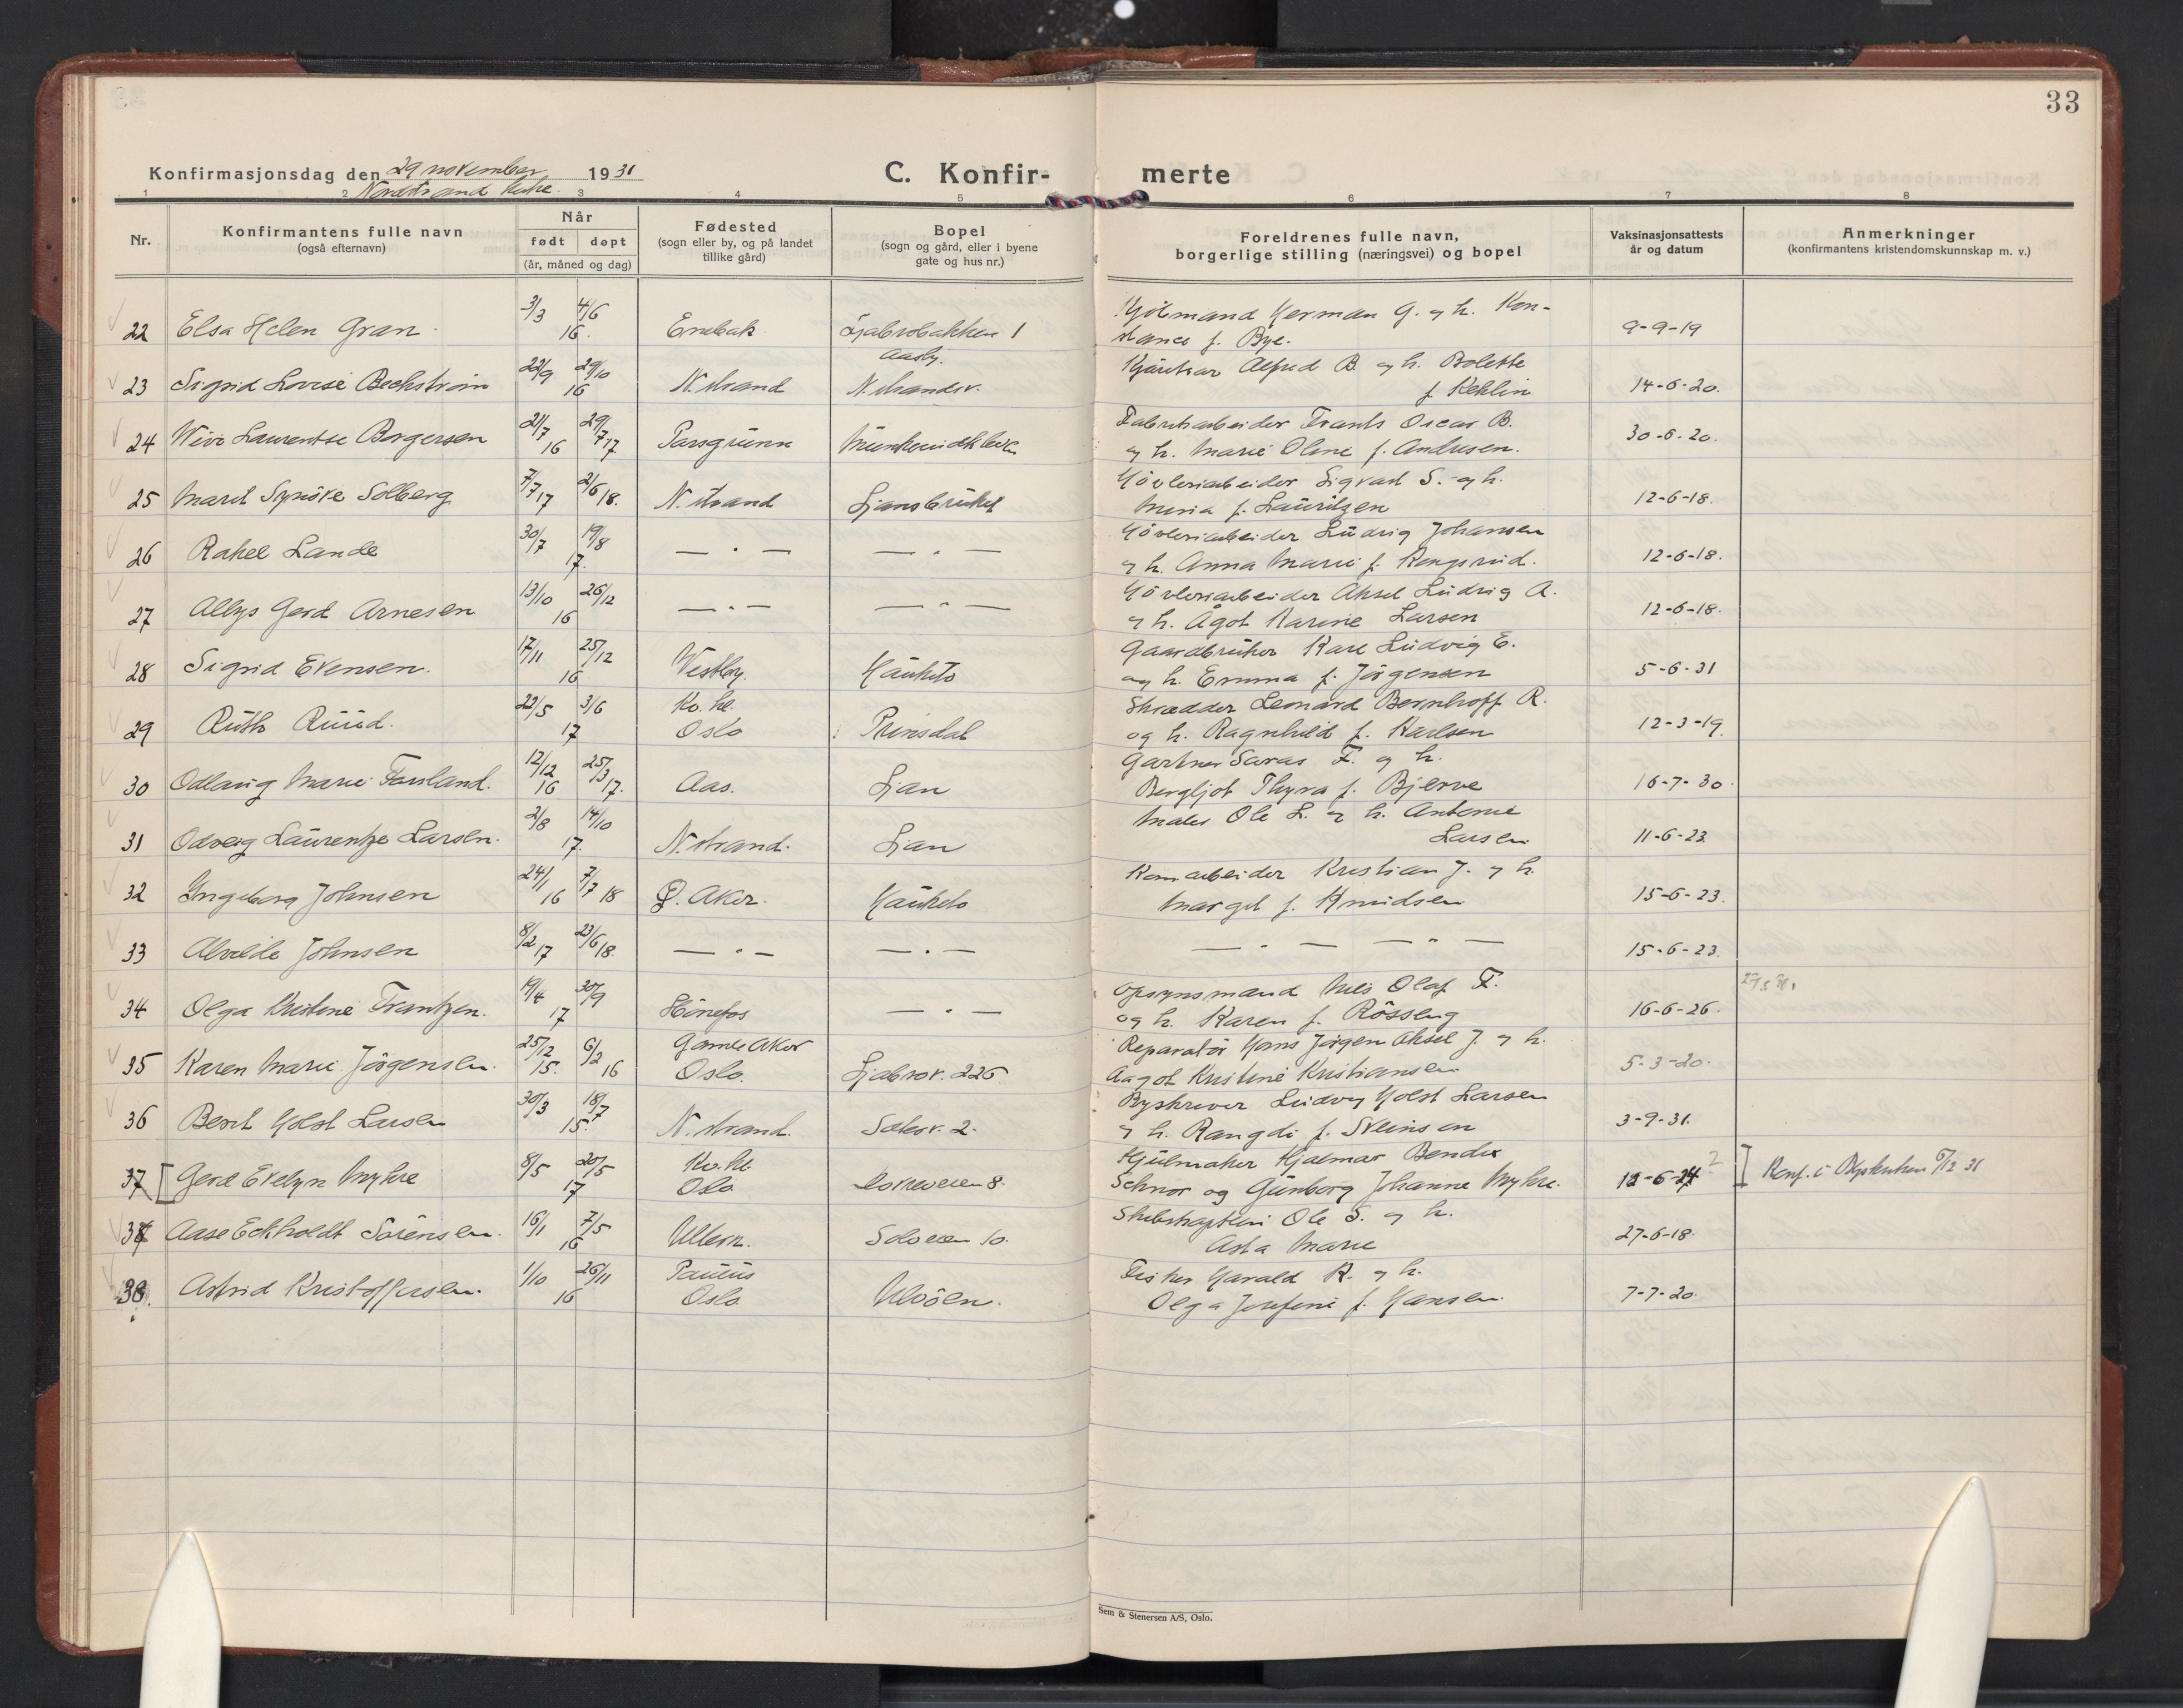 33
Konfirmasjonsdag den 29 november 1931
Nordstrand kirke.
C. Konfir- merte
1 2 3 4 5 6 7 8
Nr.
Konfirmantens fulle navn
(også efternavn)
Når
født døpt
(år, måned og dag)
Fødested
(sogn eller by, og på landet
tillike gård)
Bopel
(sogn og gård, eller i byene
gate og hus nr.)
Foreldrenes fulle navn,
borgerlige stilling (næringsvei) og bopel
Vaksinasjonsattests
år og datum
Anmerkninger
(konfirmantens kristendomskunnskap m. v.)
22 Elsa Helen Gran 3/3 16. 4/6 Enebak Ljabrobakken 1 Herman G. og h. Kon-
stance f. Bye. 9-9-19
23 Sigrid Lovise Bechstrøm 22/9 29/10 16 N.strand Aasly. N.strandsv. Alfred B. og h. Bolette
f. Kehlin 14-6-20.
24 Laurentse Borgersen 21/7 16 29/7 17 Porsgrunn Fabrikarbeider Frants Oscar B.
og h. Marie Oline f. Andresen. 30-6-20.
25 Marit Synöve Solberg 7/7 17 2/6 18. N.strand Ljansbruket Hövleriarbeider Sigvart S. og h.
Maria f. Lauritzen 12-6-18.
26 Rakel Lande 30/7 19/8 17. — " — — " — Hövleriarbeider Ludvig Johansen
og h. Anna Marie f. Kongsrud. 12-6-18.
27 Allys Gerd Arnesen 13/10 26/12 16 — " — — " — Hövleriarbeider Aksel Ludvig A.
og h. Ågot Karine Larsen 12-6-18.
28 Sigrid Evensen. 17/11 25/12 16 Vestby. Hauketo Gaardbruker Karl Ludvig E.
og h. Emma f. Jörgensen 5-6-31
29 Ruth Ruud. 22/5 3/6 17 Kv. kl. Oslo Prinsdal Skrædder Leonard Bernhoff R.
og h. Ragnhild f. Karlsen 12-3-19.
30 Odlaug Marie Fansland. 12/12 16 25/3 17. Aas. Ljan Gartner Savas F. og h.
Bergljot Thyra f. Bjerve 16-7-30.
31 Odveig Laurentze Larsen. 2/8 14/10 17. N.strand. Ljan Maler Ole L. og h. Antonie
Larsen 11-6-23
32 Ingeborg Johnsen 24/1 16 7/7 18 Ö. Aker. Hauketo Kristian J. og h.
Margit f. Knudsen 15-6-23.
33 Alvilde Johnsen 8/2 17 23/6 18. — " — — " — — " — — " — 15-6-23.
34 Olga Kristine Frantzen. 19/4 30/9 17 Hönefos — " — Opsynsmand Nils Olaf F.
og h. Karen f. Rösseng 16-6-26.
35 Karen Marie Jörgensen. 25/12 15. 6/2 16 Gamle Aker Oslo. Ljabrov. 226 Reparatör Hans Jörgen Aksel J. og h.
Aagot Kristine Kristiansen 5-3-20.
36 Berit Holst Larsen 30/3 18/7 15. N.strand. Solv. 2. Byskriver Ludvig Holst Larsen
og h. Rangdi f. Steinsen 3-9-31.
37 [Gerd Evelyn Myhre 8/5 20/5 17 Kv. kl. Oslo 8. Hjulmaker Hjalmar Bender
Schnor og Gunborg Johanne Myhre. 12-6-24 ? ] Konf. i Bykirken 6/12 31
37 Aase Eckholdt Sörensen. 16/1 7/5 16 Ullern. Solveien 10. Skibskaptein Ole S. og h.
Asta Marie 27-6-18.
38. Astrid Kristoffersen. 1/10 26/11 16 Paulus Oslo Ulvöen. Fisker Harald K. og h.
Olga Josefine f. Hansen. 7-7-20.
Sem & Stenersen A/S, Oslo.